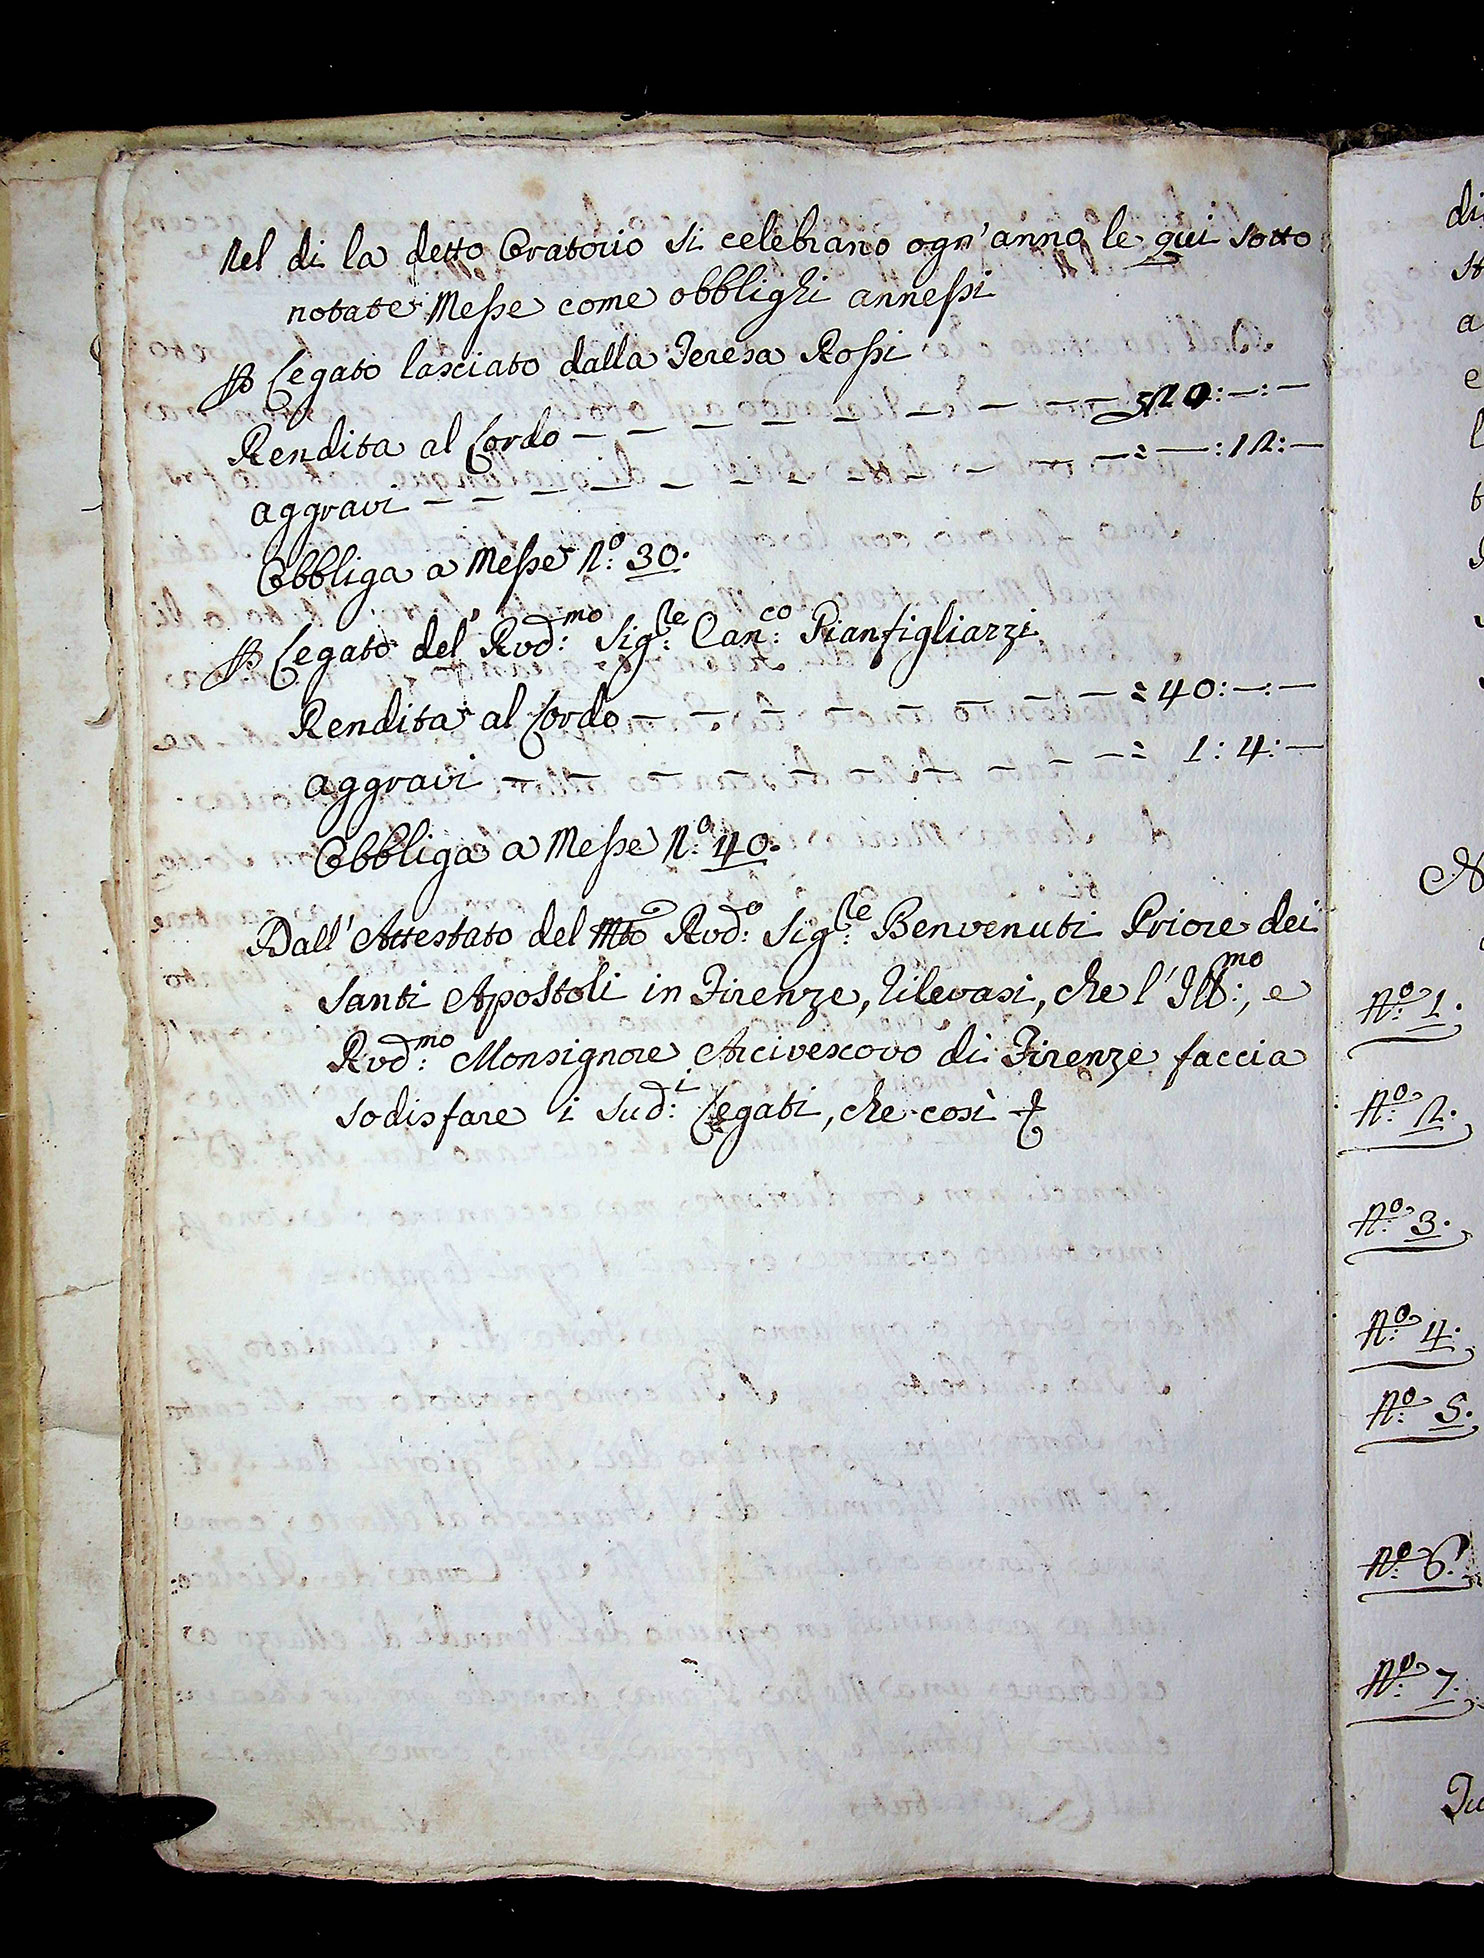 Nel di la detto Oratorio si celebrano ogn'anno le qui sotto
notate Messe come obblighi annessi
P. Legato lasciato dalla Teresa Rossi
Rendita al Lordo — — — — — — — — — 20:—:—
aggravi — — — — — — — — — — — = —:12:—
Obbliga a Messe N.º 30.
P. Legato del Rvd:mo Sig:re Can:co Gianfigliazzi
Rendita al Lordo — — — — — — — — = 40:—:—
aggravi — — — — — — — — — — = 1:4:—
Obbliga a Messe N.º 40.
Dall'Attestato del Mto Rvd:o Sig:re Benvenuti Priore dei
Santi Apostoli in Firenze, rilevasi, che l'Ill:mo, e
Rvd:mo Monsignore Arcivescovo di Firenze faccia
sodisfare i sud:i Legati, che così
di
a
e
N.º 1.
N.º 2.
N.º 3.
N.º 4.
N.º 5.
N.º 6.
N.º 7.